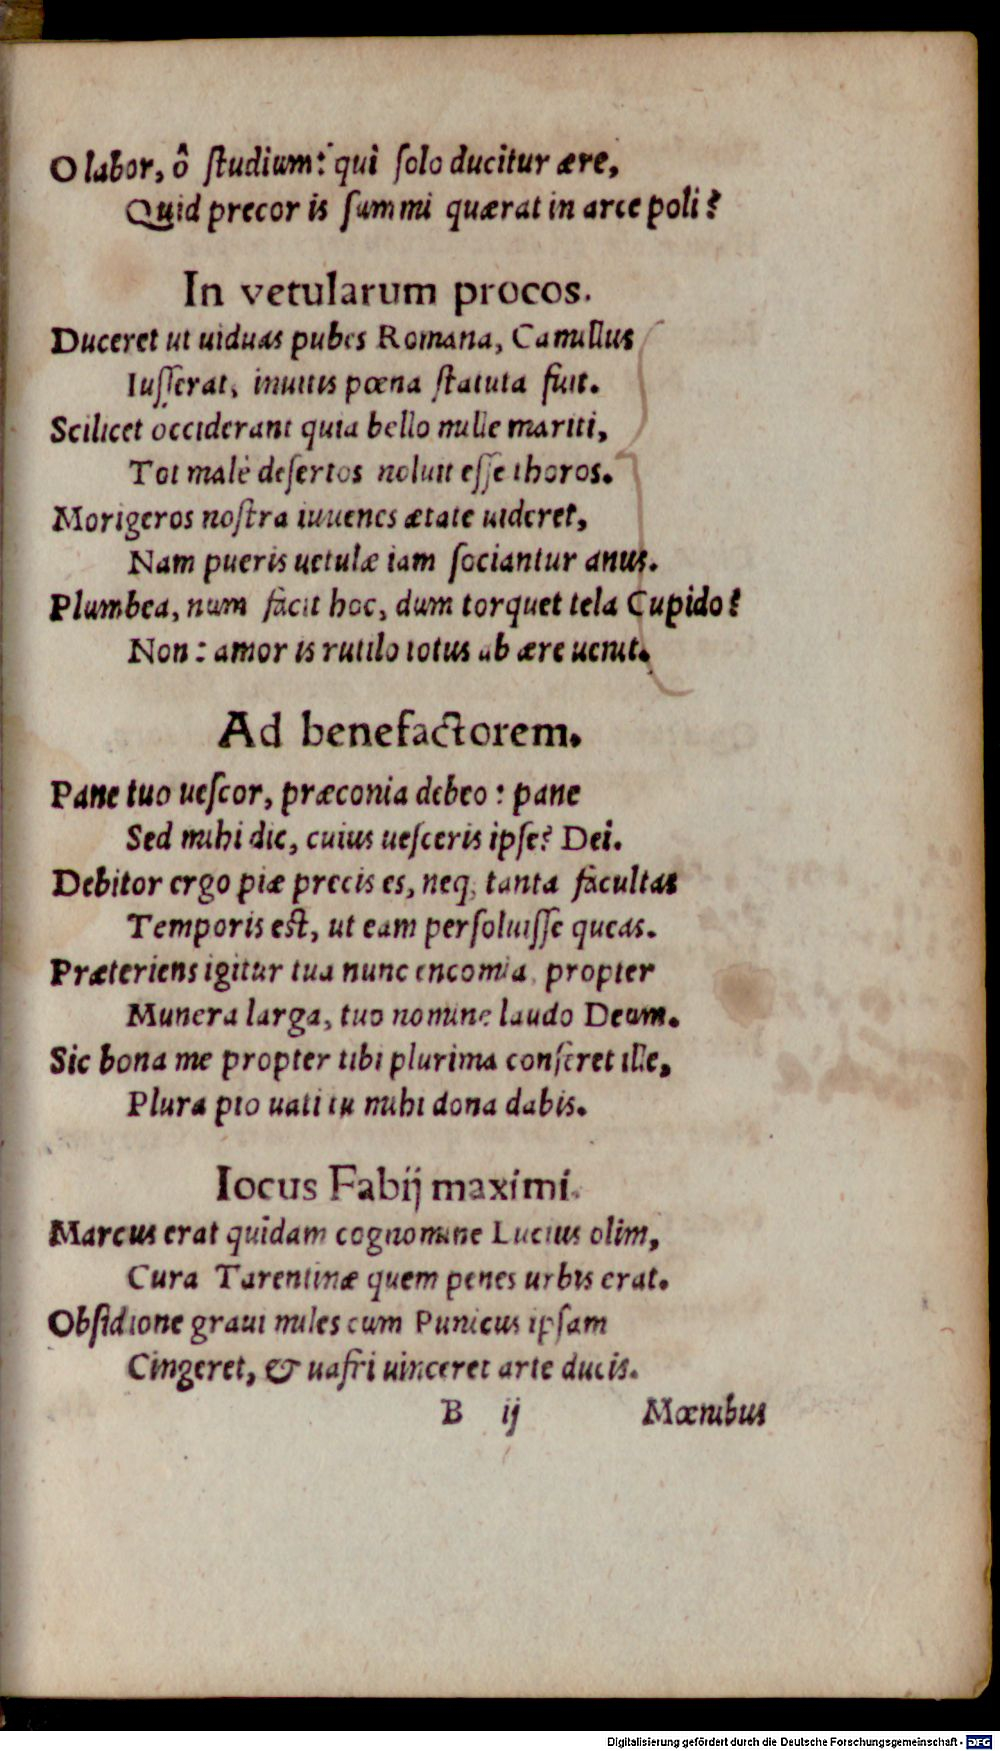 O labor, ô ſtudium: qui ſolo ducitur ære,
Quid precor is ſummi quærat in arce poli?
In vetularum procos.
Duceret ut uiduas pubes Romana, Camillus
Iuſſerat, inuitis pœna ſtatuta fuit.
Scilicet occiderant quia bello mille mariti,
Tot malè deſertos noluit eſſe thoros.
Morigeros noſtra iuuenes ætate uideret,
Nam pueris uetulæ iam ſociantur anus.
Plumbea, num facit hoc, dum torquet tela Cupido?
Non: amor is rutilo totus ab ære uenit.
Ad benefactorem.
Pane tuo ueſcor, præconia debeo: pane
Sed mihi dic, cuius ueſceris ipſe? Dei.
Debitor ergo piæ precis es, neq; tanta facultas
Temporis eſt, ut eam perſoluiſſe queas.
Præteriens igitur tua nunc encomia, propter
Munera larga, tuo nomine laudo Deum.
Sic bona me propter tibi plurima conferet ille,
Plura pio uati tu mihi dona dabis.
Iocus Fabij maximi.
Marcus erat quidam cognomine Lucius olim,
Cura Tarentinæ quem penes urbis erat.
Obſidione graui miles cum Punicus ipſam
Cingeret, & uafri uinceret arte ducis.
B ij Mœnibus
Digitalisierung gefördert durch die Deutsche Forschungsgemeinschaft - DFG